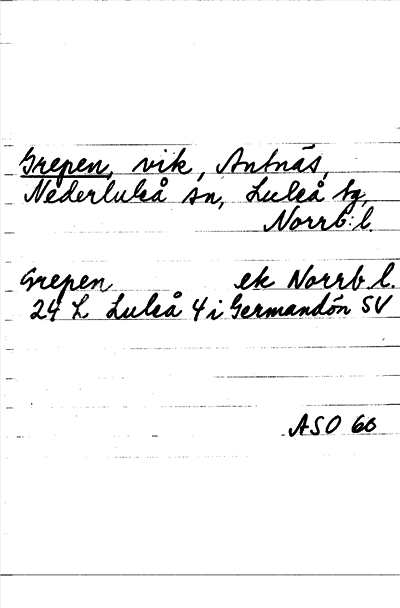 Grepen, vik, Antnäs,
Nederluleå sn, Luleå tg,
Norrb:l.
Grepen ek Norrb l.
24 L Luleå 4 i Germandön SV
ASO 66